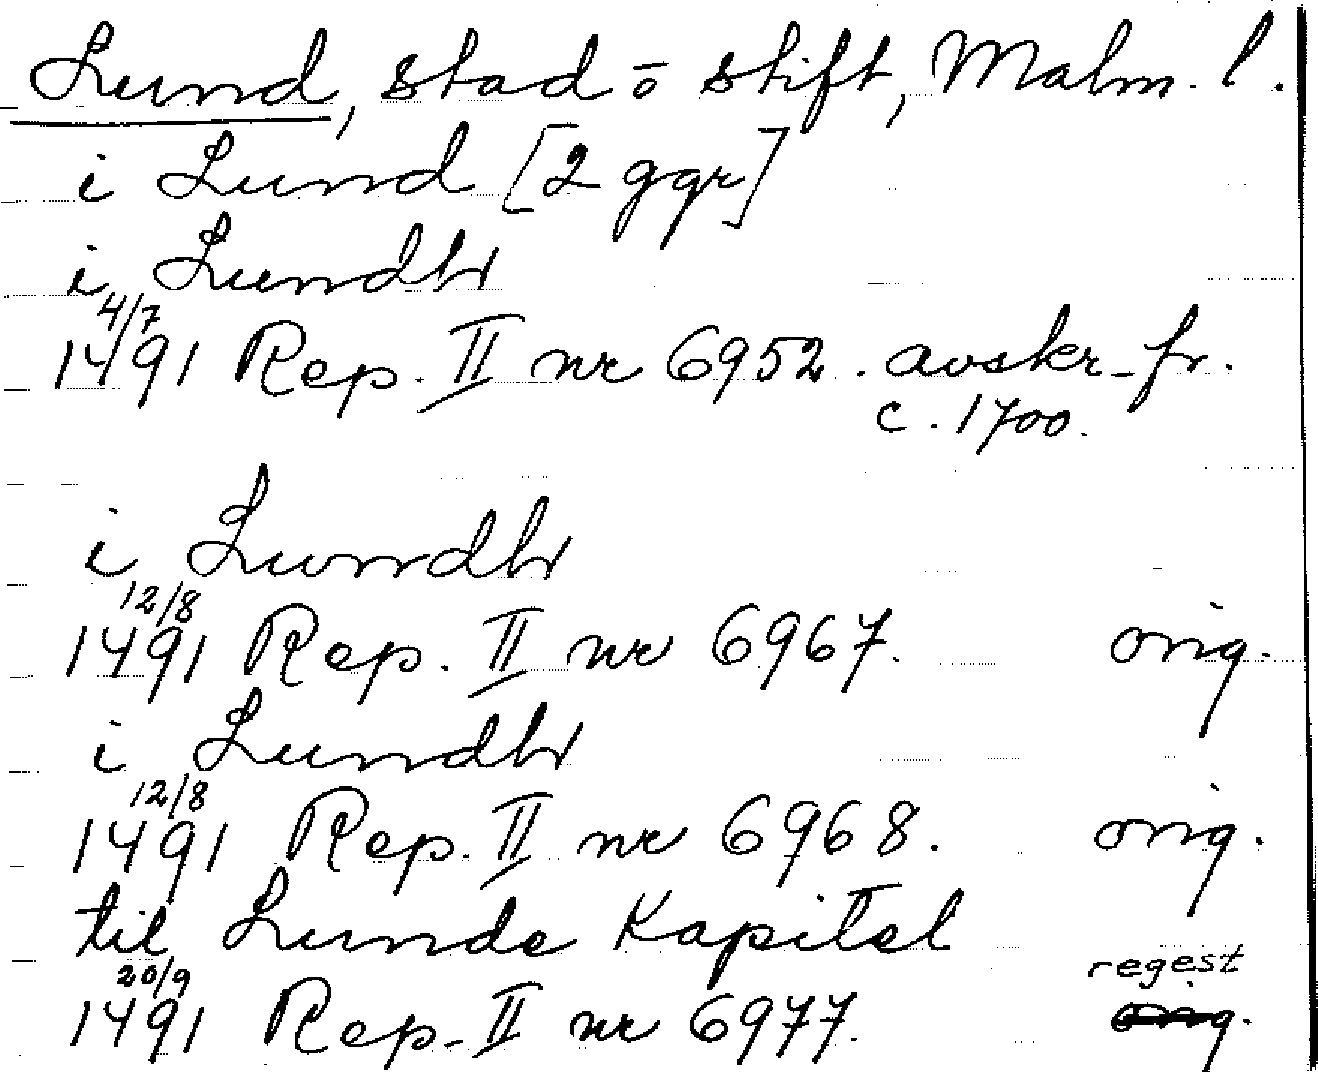 Lund, stad o stift, Malm. l.
i Lund [2 ggr]
i Lundh
4/7
1491 Rep. II nr 6952. avskr. fr.
c. 1700.
i Lwndh
12/8
1491 Rep. II nr 6967. orig.
i Lundh
12/8
1491 Rep. II nr 6968. orig.
til Lunde Kapitel
20/9 regest
1491 Rep. II nr 6977. orig.